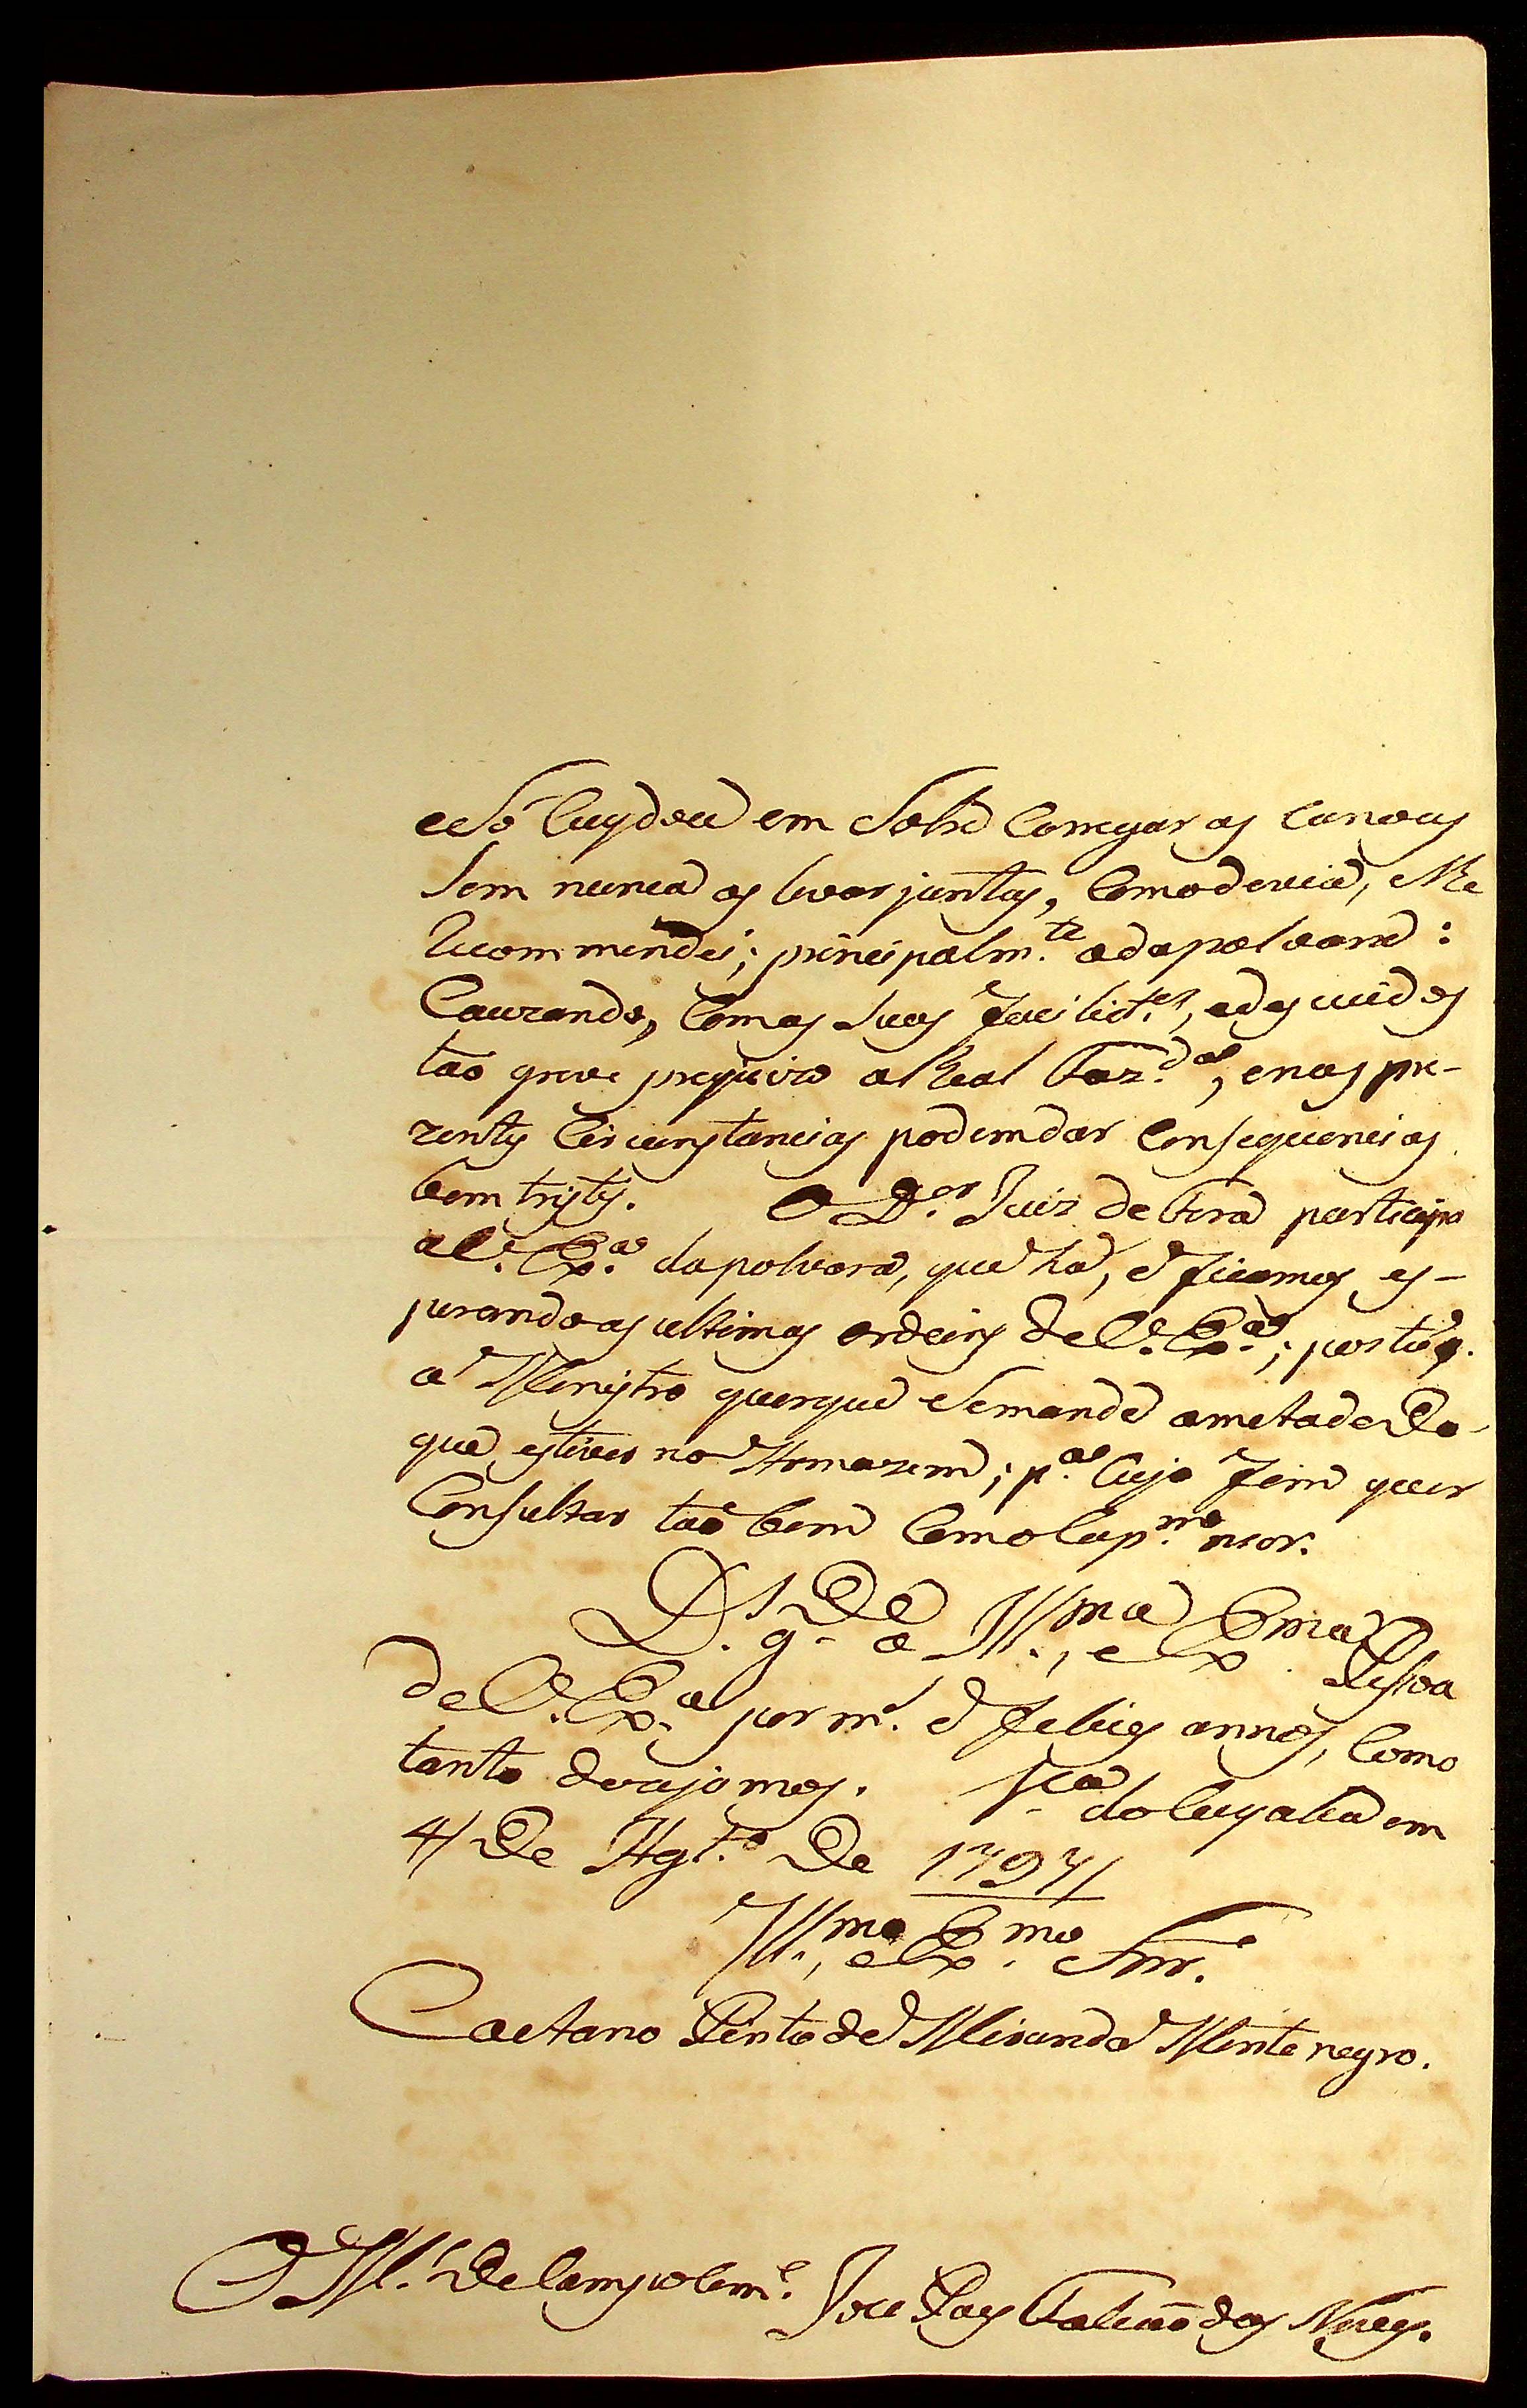 e só Cuydou em Sobre Carregar as Canoas
sem nunca as levar juntas, Como devia, e lhe
Recommendei; principalm.te a da polvara:
Cauzando, Com as Suas facilid.es, e descuidos
tão grave prejuizo a Real Faz.da, e nas pre-
zentes Circunstancias podem dar Consequencias
bem tristes. O D.or Juiz de Fora participa
a V. Ex.a da polvora, que há, e ficamos es-
perando as ultimas ordeins de V. Ex.a;
o Menistro quer que Se mande ametade da
que estiver no Armazem; p.a Cujo fim quer
Consultar tão bem Com o Cap.m mor.
D.s g.de a Ill.ma, e Ex.ma Pessoa
de V. Ex.a por m.s e felices annos, Como
tanto dezejamos. V.a do Cuyabá em
4 De Agt.o De 1797
Ill.mo, e Ex.mo Snr.
Caetano Pinto de Miranda Montenegro.
O M.e De Campo Com.e Joze Paes Falcão das Neves.